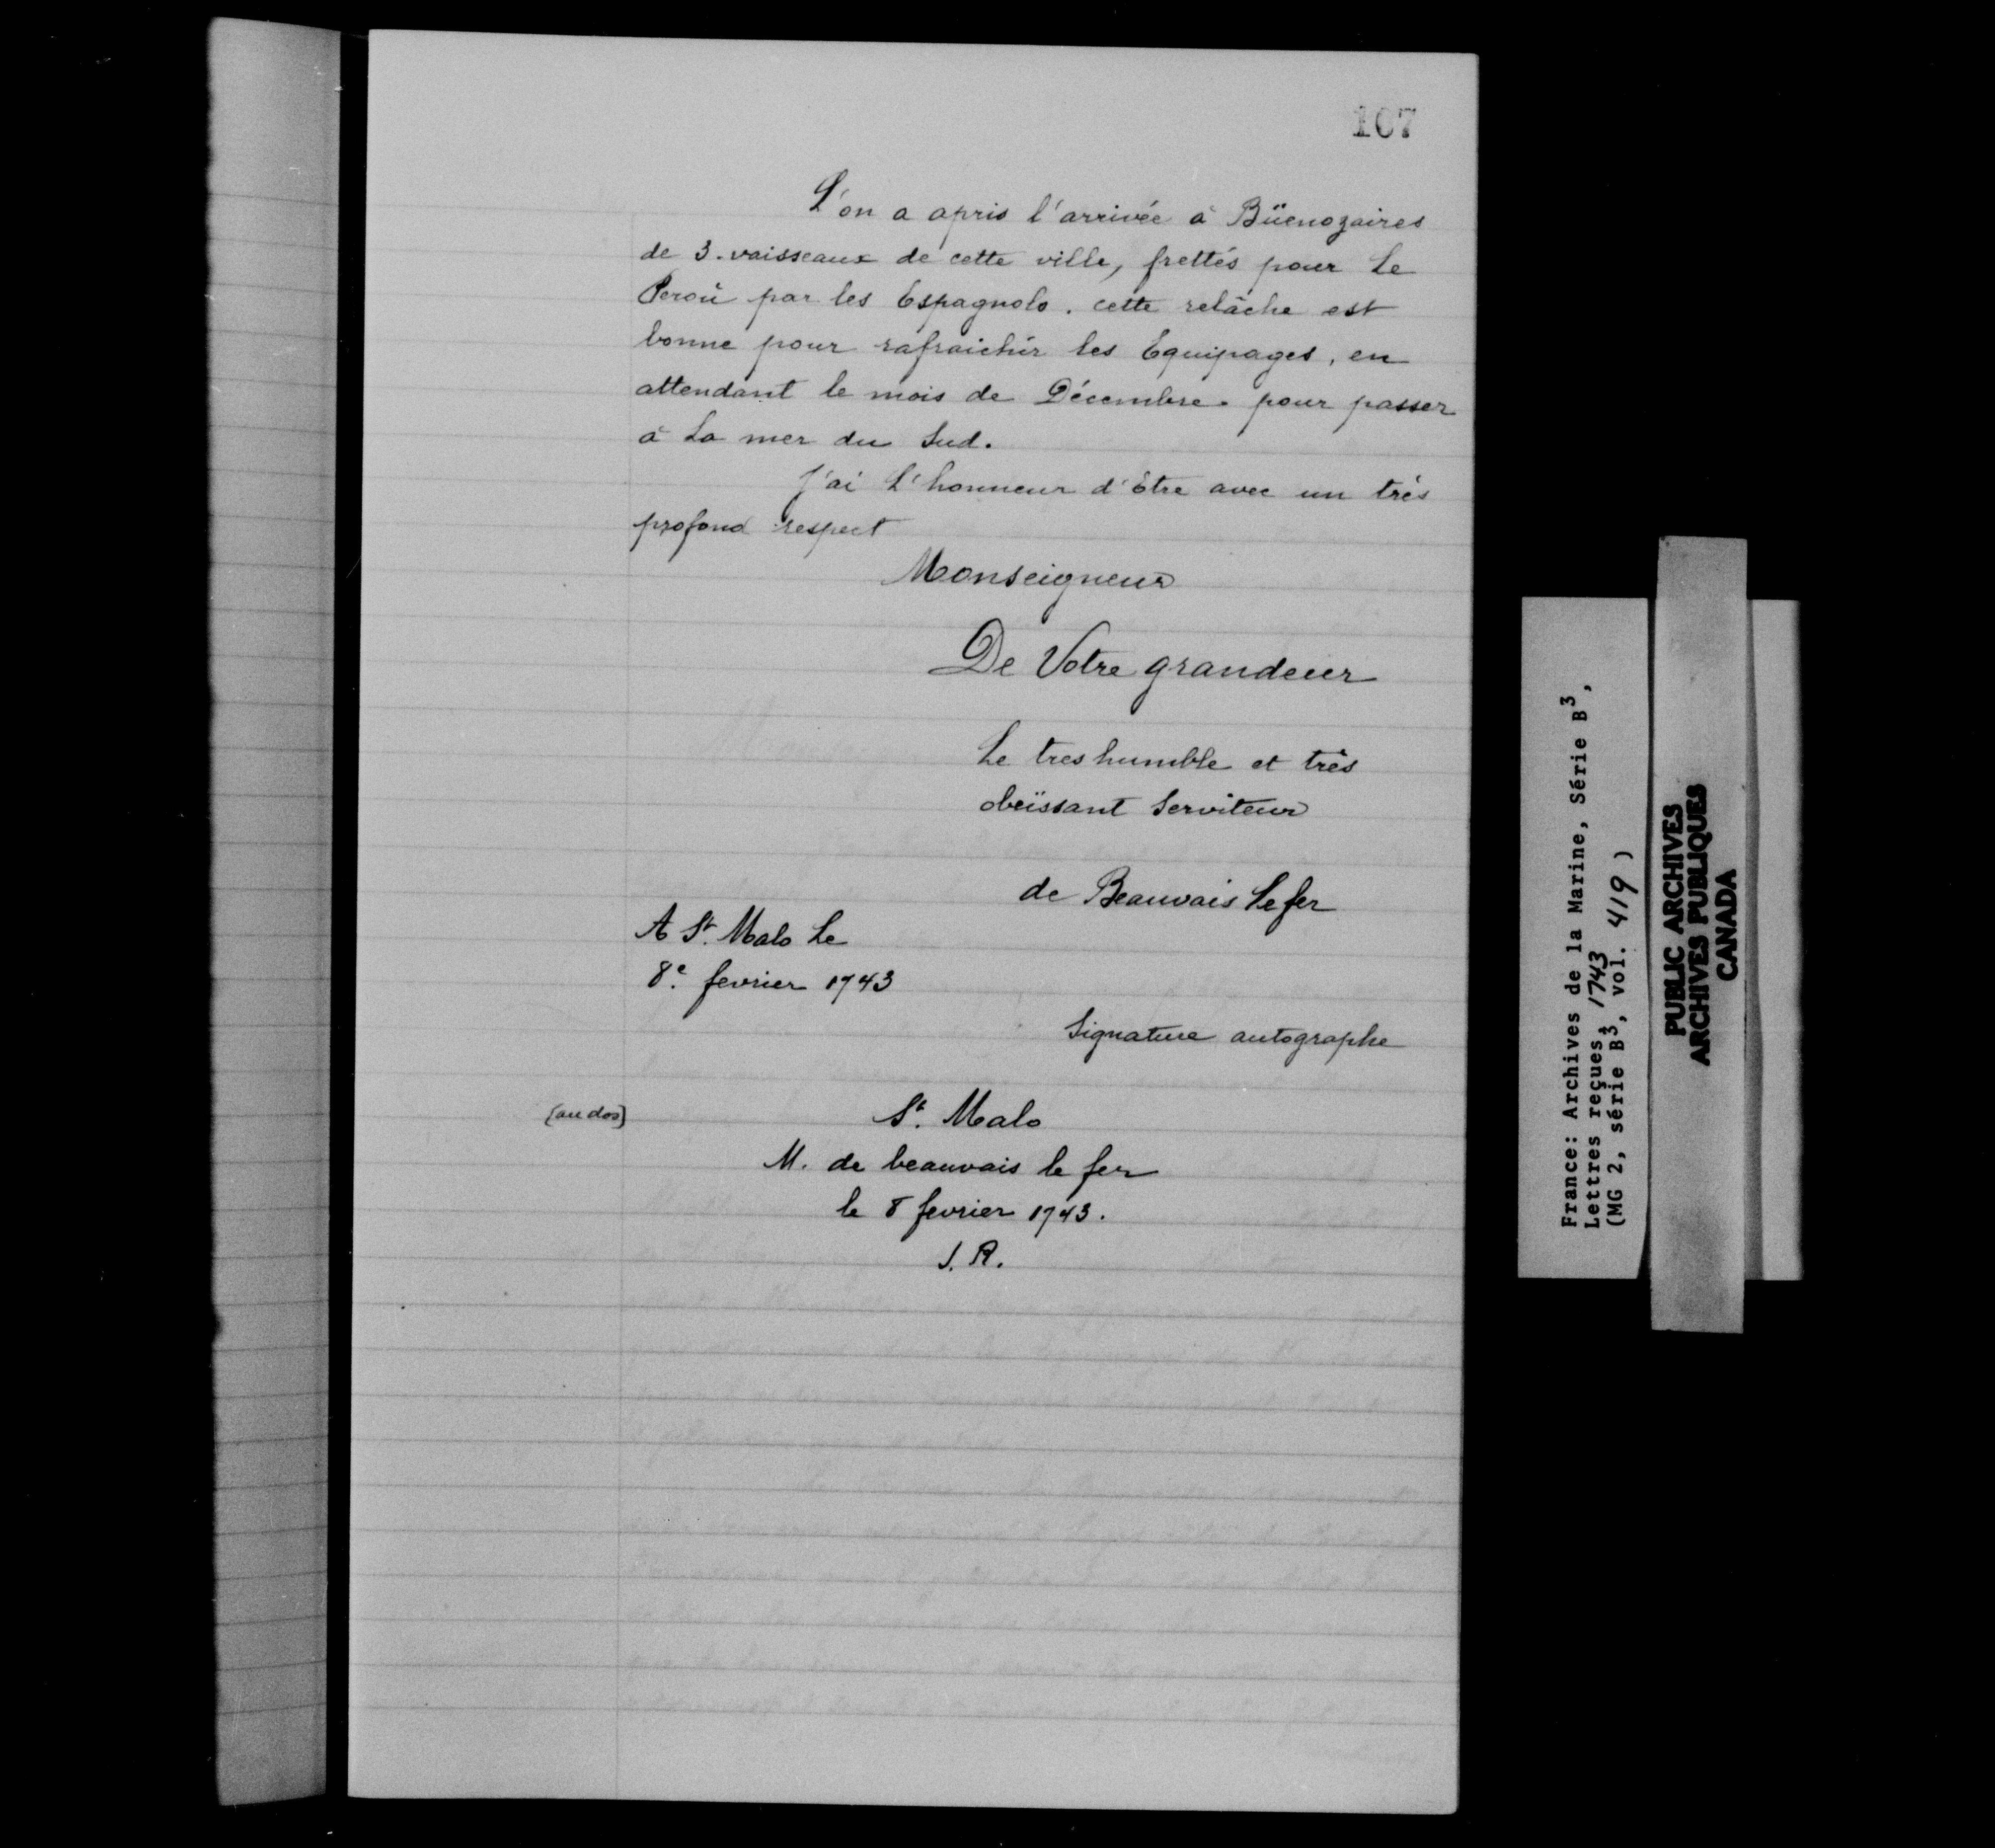 107
L'on a apris l'arrivée à Büenozaires
de 3. vaisseaux de cette ville, frettés pour Le
Peroû par les Espagnols. cette relâche est
bonne pour rafraichir les Equipages, en
attendant le mois de Décembre. pour passer
à La mer du Sud.
J'ai L'honneur d'Etre avec un très
profond respect
Monseigneur
De Votre grandeur
Le tres humble et très
obeïssant Serviteur
de Beauvais Lefer
A St. Malo Le
8e. fevrier 1743
Signature autographe
[au dos]
St. Malo
M. de beauvais le fer
le 8 fevrier 1743.
J. R.
France: Archives de la Marine, Série B3,
Lettres reçues, 1743
(MG 2, série B3, vol. 419)
PUBLIC ARCHIVES
ARCHIVES PUBLIQUES
CANADA